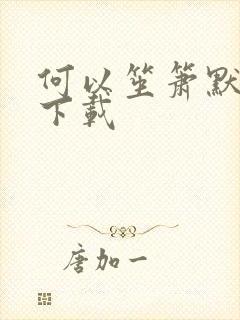 何以笙箫默
下载
唐加一